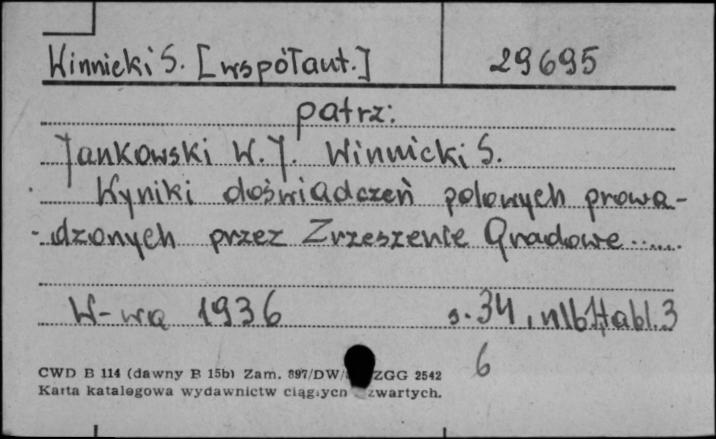 Winnicki S. [współaut.] 29695
patrz:
Jankowski W. J. Winnicki S.
Wyniki doświadczeń polowych prowa-
dzonych przez Zrzeszenie Gradowe......
W-wa 1936 s. 34, nlb 1, tabl. 3
6
CWD B 114 (dawny B 15b) Zam. 897/DW/ ZGG 2542
Karta katalogowa wydawnictw ciągłych zwartych.